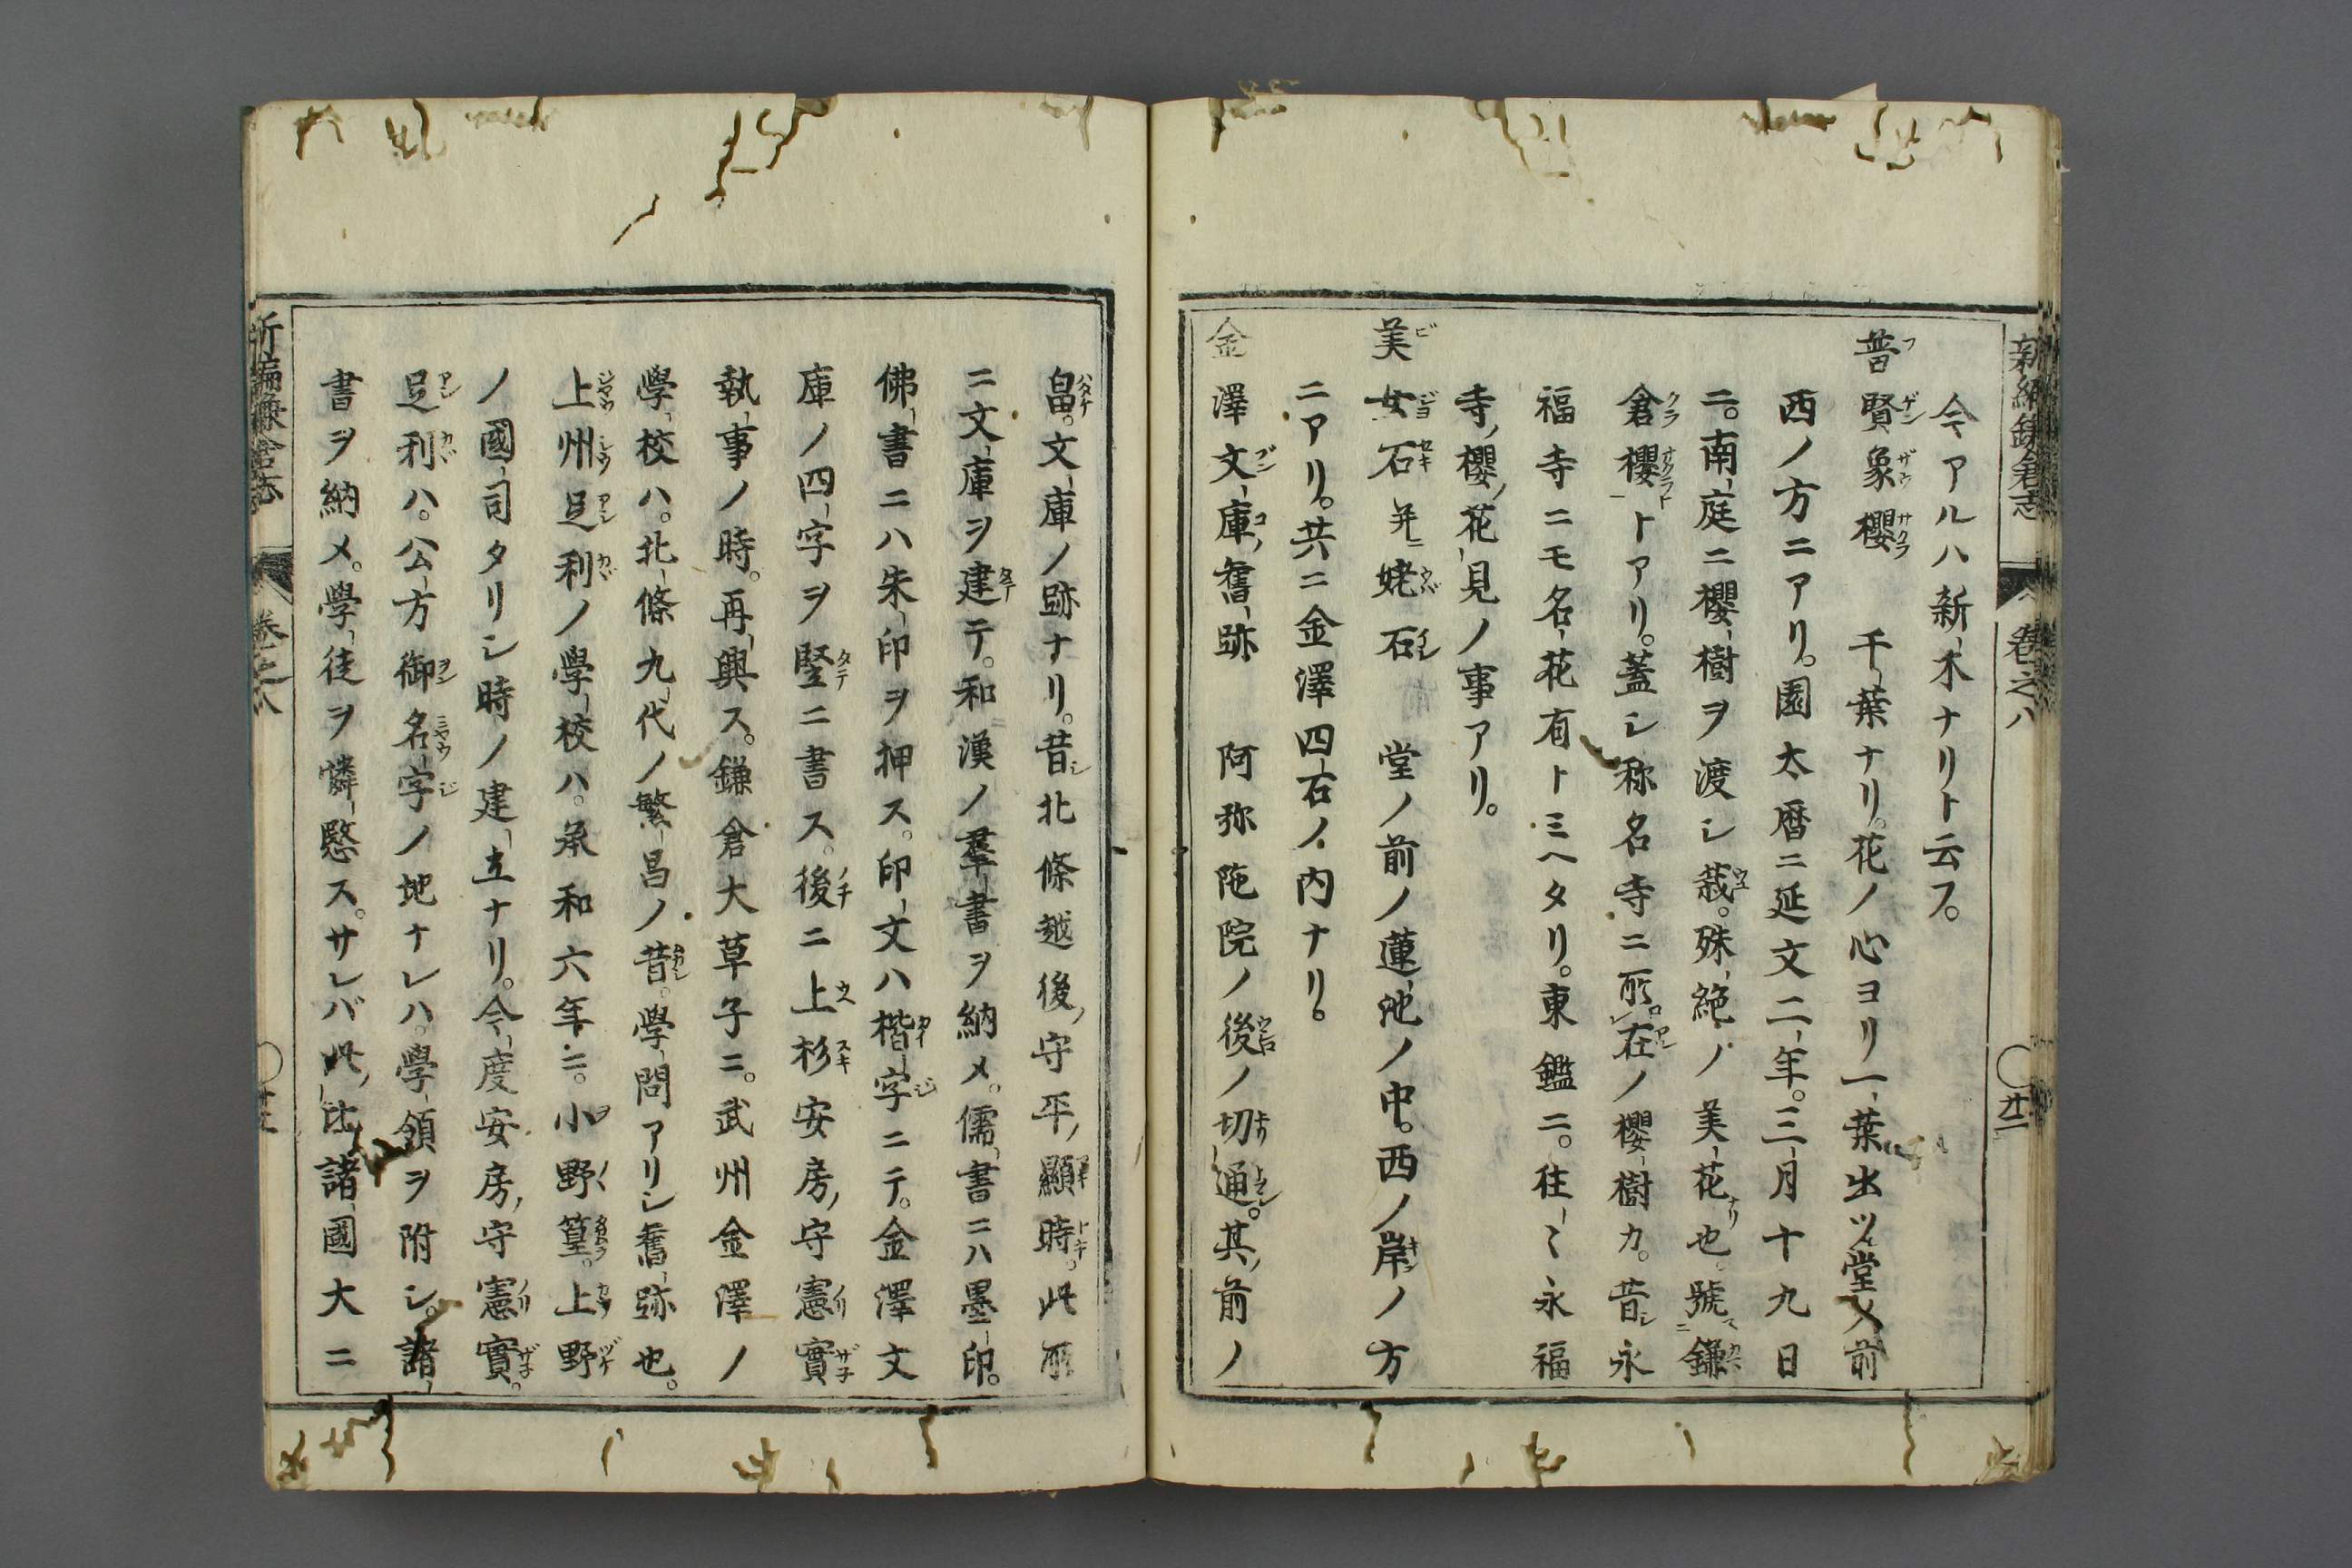 新編鎌倉志 卷之八 ○廿二
今アルハ新木ナリト云フ。
普賢象櫻 千葉ナリ。花ノ心ヨリ一葉出ツ。堂ノ前
西ノ方ニアリ。園太暦ニ延文二年。三月十九日
ニ。南庭ニ櫻樹ヲ渡シ栽。殊絶ノ美花也。號鎌
倉櫻トアリ。蓋シ称名寺ニ所在ノ櫻樹カ。昔シ永
福寺ニモ名花有ト三ヘタリ。東鑑ニ。往〻永福
寺ノ櫻ノ花見ノ事アリ。
美女石并ニ姥石 堂ノ前ノ蓮池ノ中。西ノ岸ノ方
ニアリ。共ニ金澤四石ノ内ナリ。
金澤文庫ノ舊跡 阿弥陀院ノ後ノ切通。其ノ前ノ
畠。文庫ノ跡ナリ。昔シ北條越後ノ守平ノ顯時。此所
ニ文庫ヲ建テ。和漢ノ羣書ヲ納メ。儒書ニハ墨印。
佛書ニハ朱印ヲ押ス。印文ハ楷字ニテ。金澤文
庫ノ四字ヲ竪ニ書ス。後ニ上杉安房ノ守憲實
執事ノ時。再興ス。鎌倉大草子ニ。武州金澤ノ
學校ハ。北條九代ノ繁昌ノ昔。學問アリシ舊跡也。
上州足利ノ學校ハ。承和六年ニ。小野篁。上野
ノ國司タリシ時ノ建立ナリ。今度安房ノ守憲實。
足利ハ。公方御名字ノ地ナレハ。學領ヲ附シ。諸
書ヲ納メ。學徒ヲ憐愍ス。サレバ此ノ比諸國大ニ
新編鎌倉志 卷之八 ○廿三